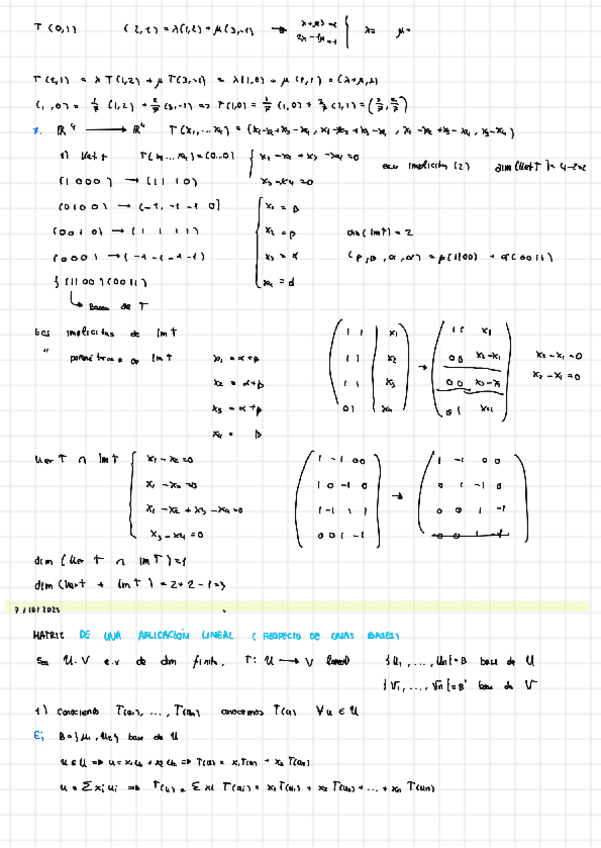 T(0,1) (2,1) = λ(1,2) + μ(3,-1) → x+μ3=2 2λ-1μ=1 } λ= μ=
T(2,1) = λ T(1,2) + μ T(3,-1) = λ(1,0) + μ(1,1) = (λ+μ, μ)
(1,0) = 1/7 (1,2) + 2/7 (3,-1) => T(1,0) = 1/7 (1,0) + 2/7 (1,1) = (3/7, 2/7)
7. ℝ⁴ → ℝ⁴ T(x₁,...x₄) = (x₁-x₂+x₃-x₄, x₁-x₂+x₃-x₄, x₁-x₂+x₃-x₄, x₃-x₄)
1) Ker T T(x₁...x₄) = (0..0) { x₁-x₂+x₃-x₄=0 ecs implícitas (2) dim(Ker T) = 4-2=2
(1 0 0 0) → (1 1 1 0) x₃-x₄=0
(0 1 0 0) → (-1, -1 -1 0] { x₁ = β
(0 0 1 0) → (1 1 1 1) x₂ = β dim(Im T) = 2
(0 0 0 1) → (-1 -1 -1 -1) x₃ = α (β, β, α, α) = β(1100) + α(0011)
{ (1100) (0011) x₄ = α
↳ Bases de T
Ecs implícitas de Im T
" paramétricas de Im T x₁ = α+β
x₂ = α+β
x₃ = α+β
x₄ = β
( 1 1 | x₁ ) → ( 1 1 x₁ )
( 1 1 | x₂ ) ( 0 0 x₂-x₁ ) x₂-x₁=0
( 1 1 | x₃ ) ( 0 0 x₃-x₁ ) x₃-x₁=0
( 0 1 | x₄ ) ( 0 1 x₄ )
Ker T ∩ Im T { x₁-x₂=0
x₁-x₃=0
x₁-x₂+x₃-x₄=0
x₃-x₄=0
( 1 -1 0 0 ) → ( 1 -1 0 0 )
( 1 0 -1 0 ) ( 0 1 -1 0 )
( 1 -1 1 1 ) ( 0 0 1 -1 )
( 0 0 1 -1 ) ( 0 0 1 -1 )
dim (Ker T ∩ Im T) = 1
dim (Ker T + Im T) = 2+2-1=3
MATRIZ DE UNA APLICACIÓN LINEAL (RESPECTO DE UNAS BASES)
Sea U, V e.v de dim finita, T: U → V lineal {u₁, ..., un} = B base de U
{v₁, ..., vn} = B' base de V
1) Conociendo T(u₁), ..., T(un) conocemos T(u) ∀u ∈ U
Ej B={u₁, u₂} base de U
u∈U => u=x₁u₁+x₂u₂ => T(u) = x₁T(u₁) + x₂T(u₂)
u = Σ xᵢuᵢ => T(u) = Σ xᵢ T(uᵢ) = x₁T(u₁) + x₂T(u₂) + ... + xnT(un)